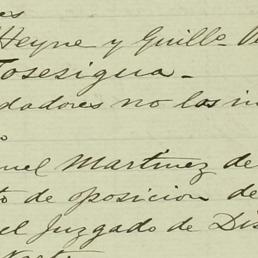 es
Heyne y Guillo. Ve
Tosesigua.-
dadores no los in
o
uel Martinez de
to de oposicion de
el Juzgado de Dis